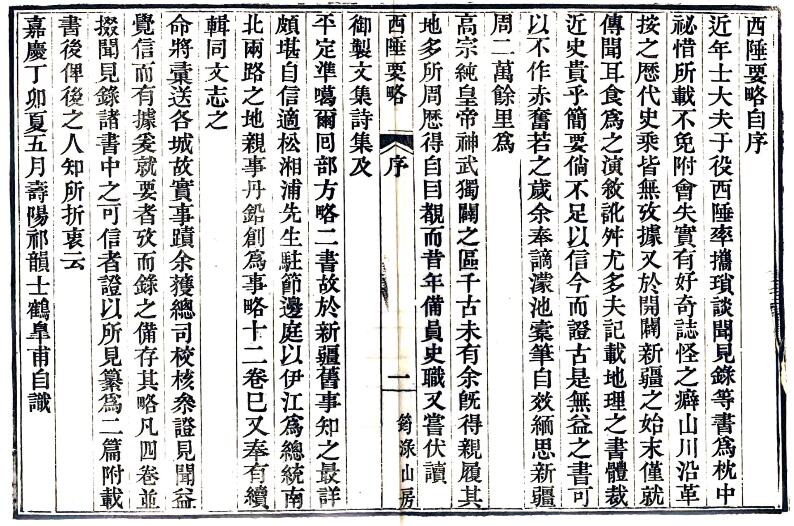 西陲要略自序
近年士大夫于役西陲率攜瑣談聞見錄等書爲枕中
祕惜所載不免附會失實有好奇誌怪之癖山川沿革
按之歷代史乘皆無攷據又於開闢新疆之始末僅就
傳聞耳食爲之演敘訛舛尤多夫記載地理之書體裁
近史貴乎簡要倘不足以信今而證古是無益之書可
以不作赤奮若之歲余奉謫濛池橐筆自效緬思新疆
周二萬餘里爲
高宗純皇帝神武獨闢之區千古未有余旣得親履其
地多所周歷得自目覩而昔年備員史職又嘗伏讀
西陲要略
序
一
筠淥山房
御製文集詩集及
平定準噶爾回部方略二書故於新疆舊事知之最詳
頗堪自信適松湘浦先生駐節邊庭以伊江爲總統南
北兩路之地親事丹鉛創爲事略十二卷已又奉有續
輯同文志之
命將彚送各城故實事蹟余獲總司校核參證見聞益
覺信而有據爰就要者攷而錄之備存其略凡四卷並
掇聞見錄諸書中之可信者證以所見纂爲二篇附載
書後俾後之人知所折衷云
嘉慶丁卯夏五月壽陽祁韻士鶴皐甫自識